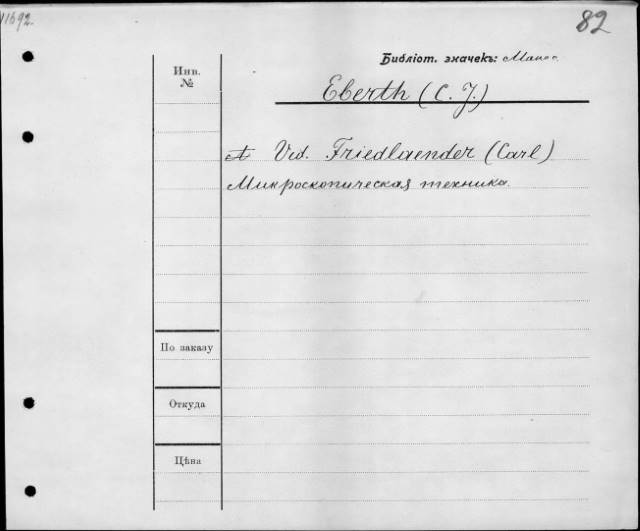 11692
82
Библіот. значекъ:
Инв.
№
Eberth (C. J.)
Vid. Friedlaender (Carl)
Микроскопическая техника.
По заказу
Откуда
Цѣна